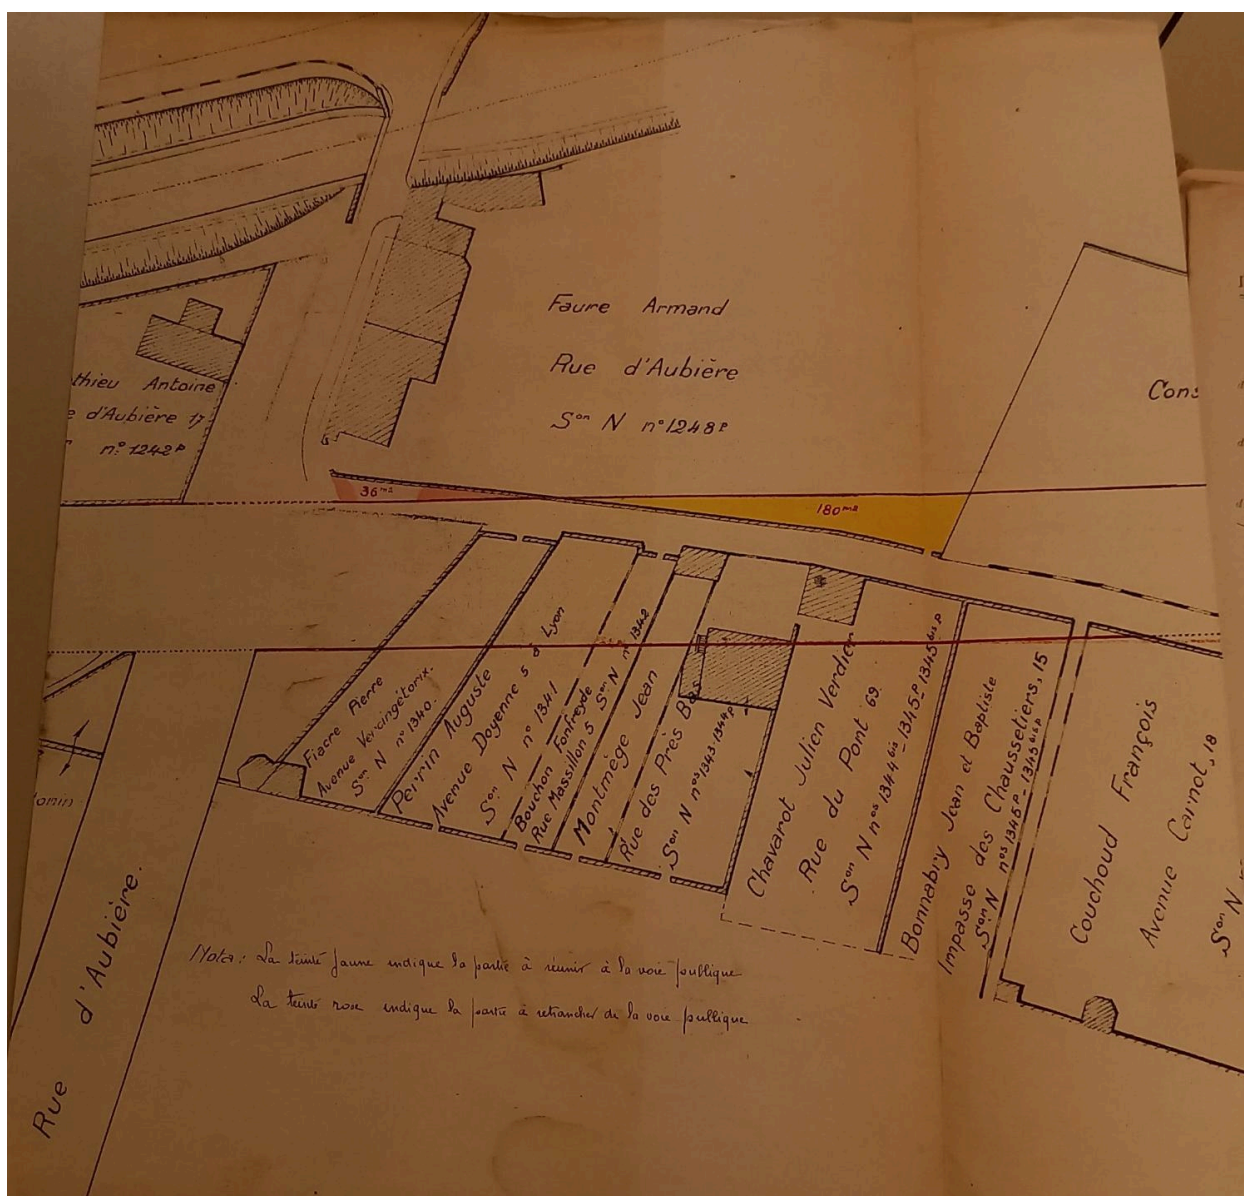 Faure Armand
Rue d'Aubière
Sᵒⁿ N nº 1248ᵖ
Cons
thieu Antoine
e d'Aubière 17
nº 1242ᵖ
36ᵐ²
180ᵐ²
Fiacre Pierre
Avenue Vercingétorix.
Sᵒⁿ N nº 1340.
Perrin Auguste
Avenue Doyenne 5 à Lyon
Sᵒⁿ N nº 1341
Bouchon Fonfreyde
Rue Massillon 5 Sᵒⁿ N nº 1342
Montmège Jean
Rue des Près Bas
Sᵒⁿ N nᵒˢ 1343-1344ᵖ
Chavarot Julien Verdier
Rue du Pont 69.
Sᵒⁿ N nᵒˢ 1344ᵇⁱˢ-1345ᵖ-1345ᵇⁱˢᵖ
Bonnabry Jean et Baptiste
Impasse des Chaussetiers, 15
Sᵒⁿ N nᵒˢ 1345ᵖ-1345ᵇⁱˢᵖ
Couchoud François
Avenue Carnot, 18
Sᵒⁿ N
Rue d'Aubière.
Nota: La teinte jaune indique la partie à réunir à la voie publique
La teinte rose indique la partie à retrancher de la voie publique